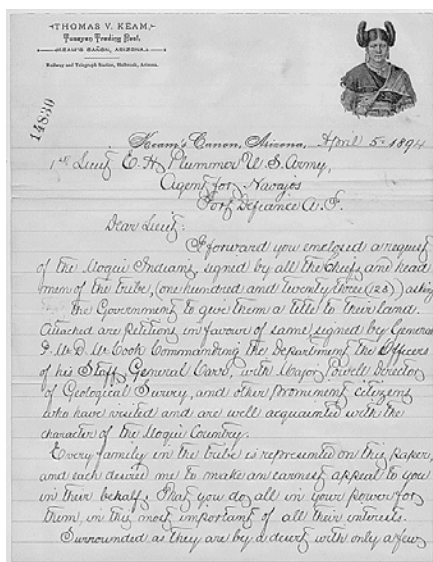 THOMAS V. KEAM,
Tusayan Trading Post,
KEAM'S CAÑON, ARIZONA.
Railway and Telegraph Station, Holbrook, Arizona.
14830
Keam's Canon, Arizona, April 5th 1894
1st Lieut E. H. Plummer U. S. Army,
Agent for Navajos
Fort Defiance A. T.
Dear Lieut:
I forward you enclosed a request
of the Moqui Indians, signed by all the Chiefs and head
men of the tribe, (one hundred and twenty three (123)) asking
the Government to give them a title to their land.
Attached are petitions in favour of same signed by General
McD. McCook Commanding the Department the Officers
of his Staff, General Carr, with Major Powell Director
of Geological Survey, and other prominent citizens
who have visited and are well acquainted with the
character of the Moqui Country.
Every family in the tribe is represented on this paper,
and each desired me to make an earnest appeal to you
in their behalf, That you do all in your power for
them, in this most important of all their interests.
Surrounded as they are by a desert with only a few